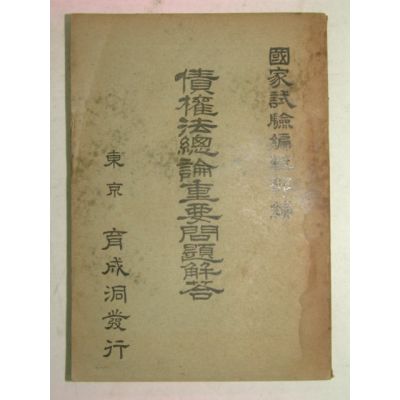 國家試驗編輯部編
債權法總論重要問題解答
東京 育成洞發行